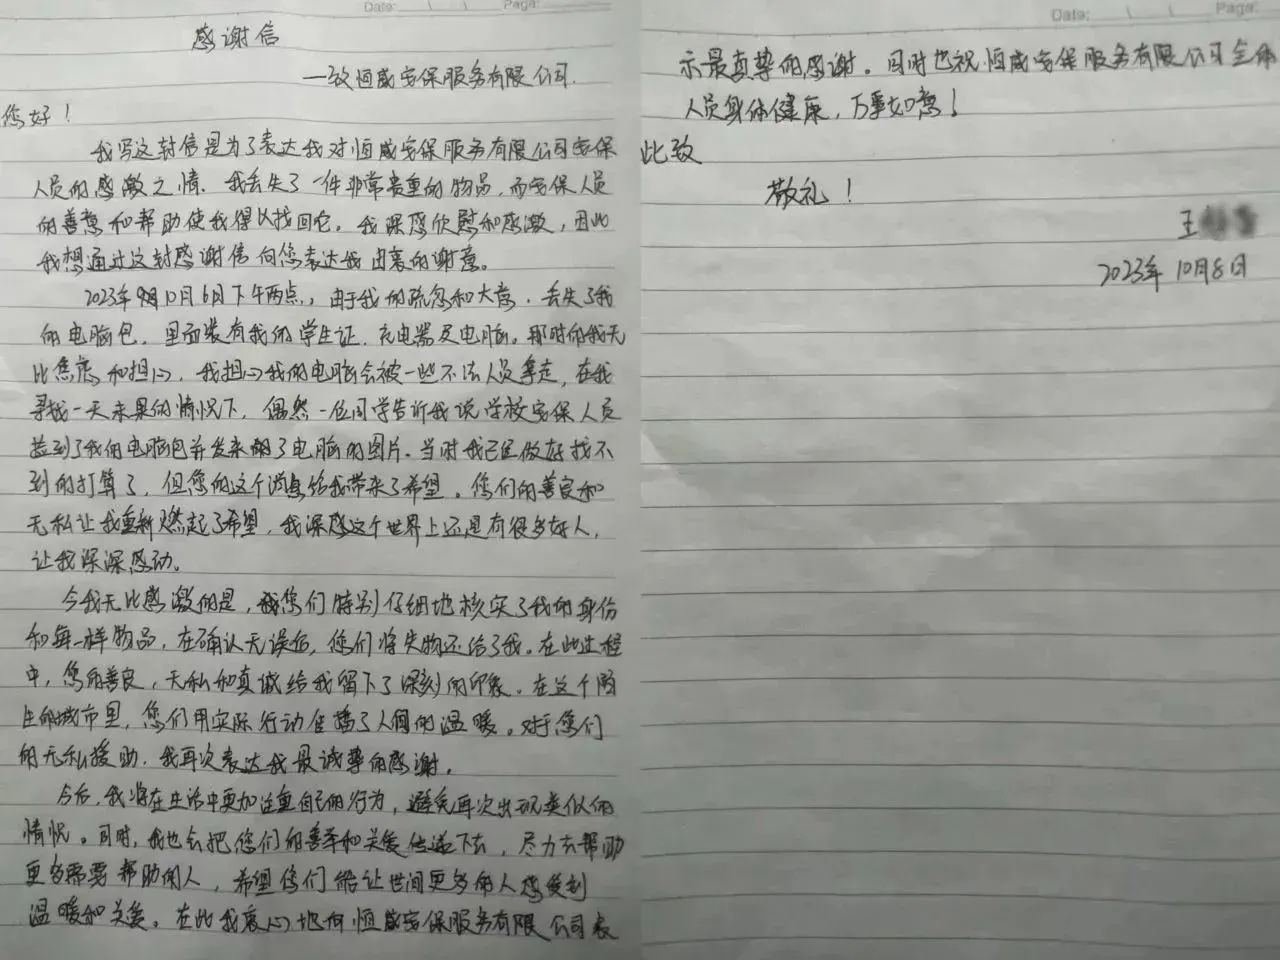 Date: \ \ Page:
感谢信
—致恒威安保服务有限公司.
您好！
我写这封信是为了表达我对恒威安保服务有限公司安保
人员的感激之情. 我丢失了一件非常贵重的物品, 而安保人员
的善意和帮助使我得以找回它。我深感欣慰和感激, 因此
我想通过这封感谢信向您表达我由衷的谢意。
2023年10月6日下午两点, 由于我的疏忽和大意, 丢失了我
的电脑包, 里面装有我的学生证, 充电器及电脑。那时的我无
比焦虑和担心, 我担心我的电脑会被一些不法人员拿走, 在我
寻找一天未果的情况下, 偶然一位同学告诉我说学校安保人员
捡到了我的电脑包并发来了电脑的图片. 当时我已经做好找不
到的打算了, 但您的这个消息给我带来了希望. 您们的善良和
无私让我重新燃起了希望, 我深感这个世界上还是有很多好人,
让我深深感动.
令我无比感激的是, 您们特别仔细地核实了我的身份
和每一样物品, 在确认无误后, 您们将失物还给了我. 在此过程
中, 您的善良, 无私和真诚给我留下了深刻的印象. 在这个陌
生的城市里, 您们用实际行动传播了人间的温暖. 对于您们
的无私援助, 我再次表达我最诚挚的感谢.
今后, 我将在生活中更加注重自己的行为, 避免再次出现类似的
情况. 同时, 我也会把您们的善举和关爱传递下去, 尽力去帮助
更多需要帮助的人, 希望您们能让世间更多的人感受到
温暖和关爱. 在此我衷心地向恒威安保服务有限公司表
Date: \ \ Page:
示最真挚的感谢. 同时也祝恒威安保服务有限公司全体
人员身体健康, 万事如意!
此致
敬礼!
王
2023年10月8日